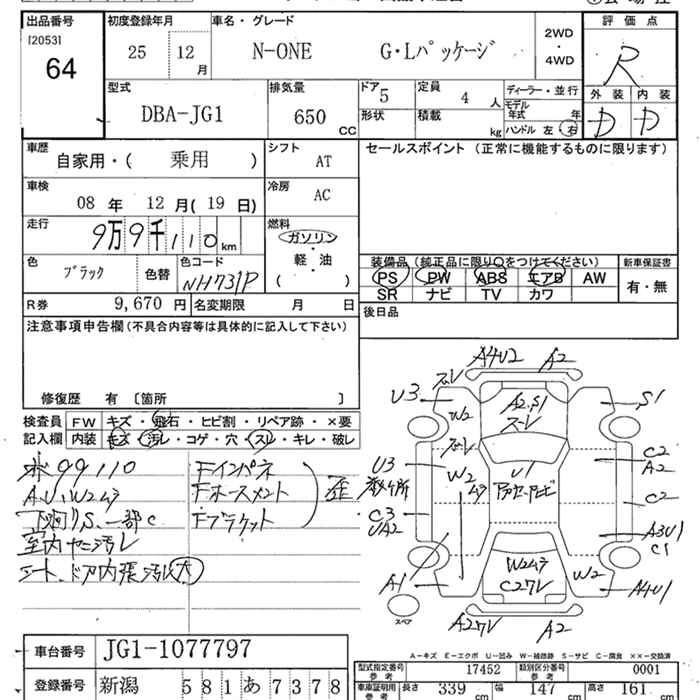 出品番号
[2053]
64
初度登録年月
25 12 月
車名・グレード
N-ONE G・Lパッケージ
2WD
・
4WD
評価点
R
外装 内装
D D
型式
DBA-JG1
排気量
650 CC
ドア 5
形状
定員 4 人
積載 kg
ディーラー・並行
モデル年式 年
ハンドル 左・右
車歴
自家用・( 乗用 )
シフト
AT
セールスポイント (正常に機能するものに限ります)
車検
08 年 12 月(19 日)
冷房
AC
走行
9万9千110 km
燃料
ガソリン
・
軽・油
( )
色
ブラック
色替
色コード
NH731P
装備品(純正品に限り○をつけてください)
PS PW ABS エアB AW
SR ナビ TV カワ
新車保証書
有・無
R券 9,670 円
名変期限 月 日
後日品
注意事項申告欄(不具合内容等は具体的に記入して下さい)
修復歴 有 〔箇所 〕
検査員記入欄
FW キズ・飛石・ヒビ割・リペア跡・×要
内装 キズ・汚レ・コゲ・穴・スレ・キレ・破レ
99110
A.U.W2ムラ
下廻りS.一部C
室内ヤニ汚レ
シート、ドア内張汚レ大
Fインパネ
Fホースメント
Fブラケット
歪
A4U2 A2
ズレ
U3
W2
A2.S1
ズレ
S1
ズレ
U3
数ヶ所
W2
ムラ
U1
C2
A2
C3
UA2
C2
A3U1
C1
A1
W2ムラ
C27レ
W2
A4U1
スペア
A27レ A2
A－キズ E－エクボ U－凹み W－補修跡 S－サビ C－腐食 ××－交換済
車台番号 JG1-1077797
登録番号 新潟 581 あ 7378
型式指定番号参考 17452
類別区分番号参考 0001
車庫証明用参考 長さ 339 cm 幅 147 cm 高さ 161 cm